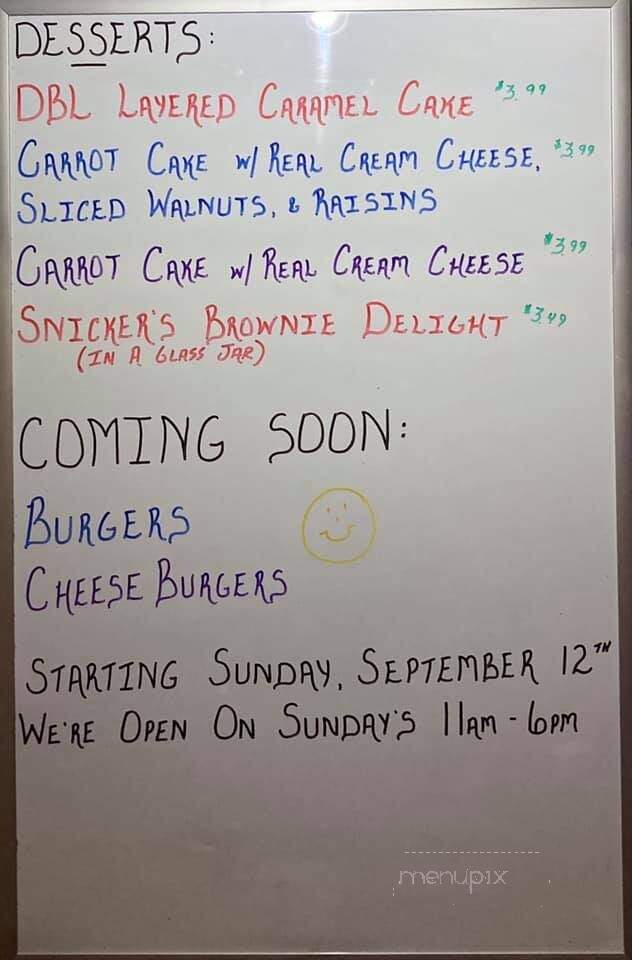 DESSERTS:
DBL LAYERED CARAMEL CAKE $3.99
CARROT CAKE W/ REAL CREAM CHEESE, $3.99
SLICED WALNUTS, & RAISINS
CARROT CAKE W/ REAL CREAM CHEESE $3.99
SNICKER'S BROWNIE DELIGHT $3.49
(IN A GLASS JAR)
COMING SOON:
BURGERS
CHEESE BURGERS
STARTING SUNDAY, SEPTEMBER 12TH
WE'RE OPEN ON SUNDAY'S 11AM - 6PM
menupix